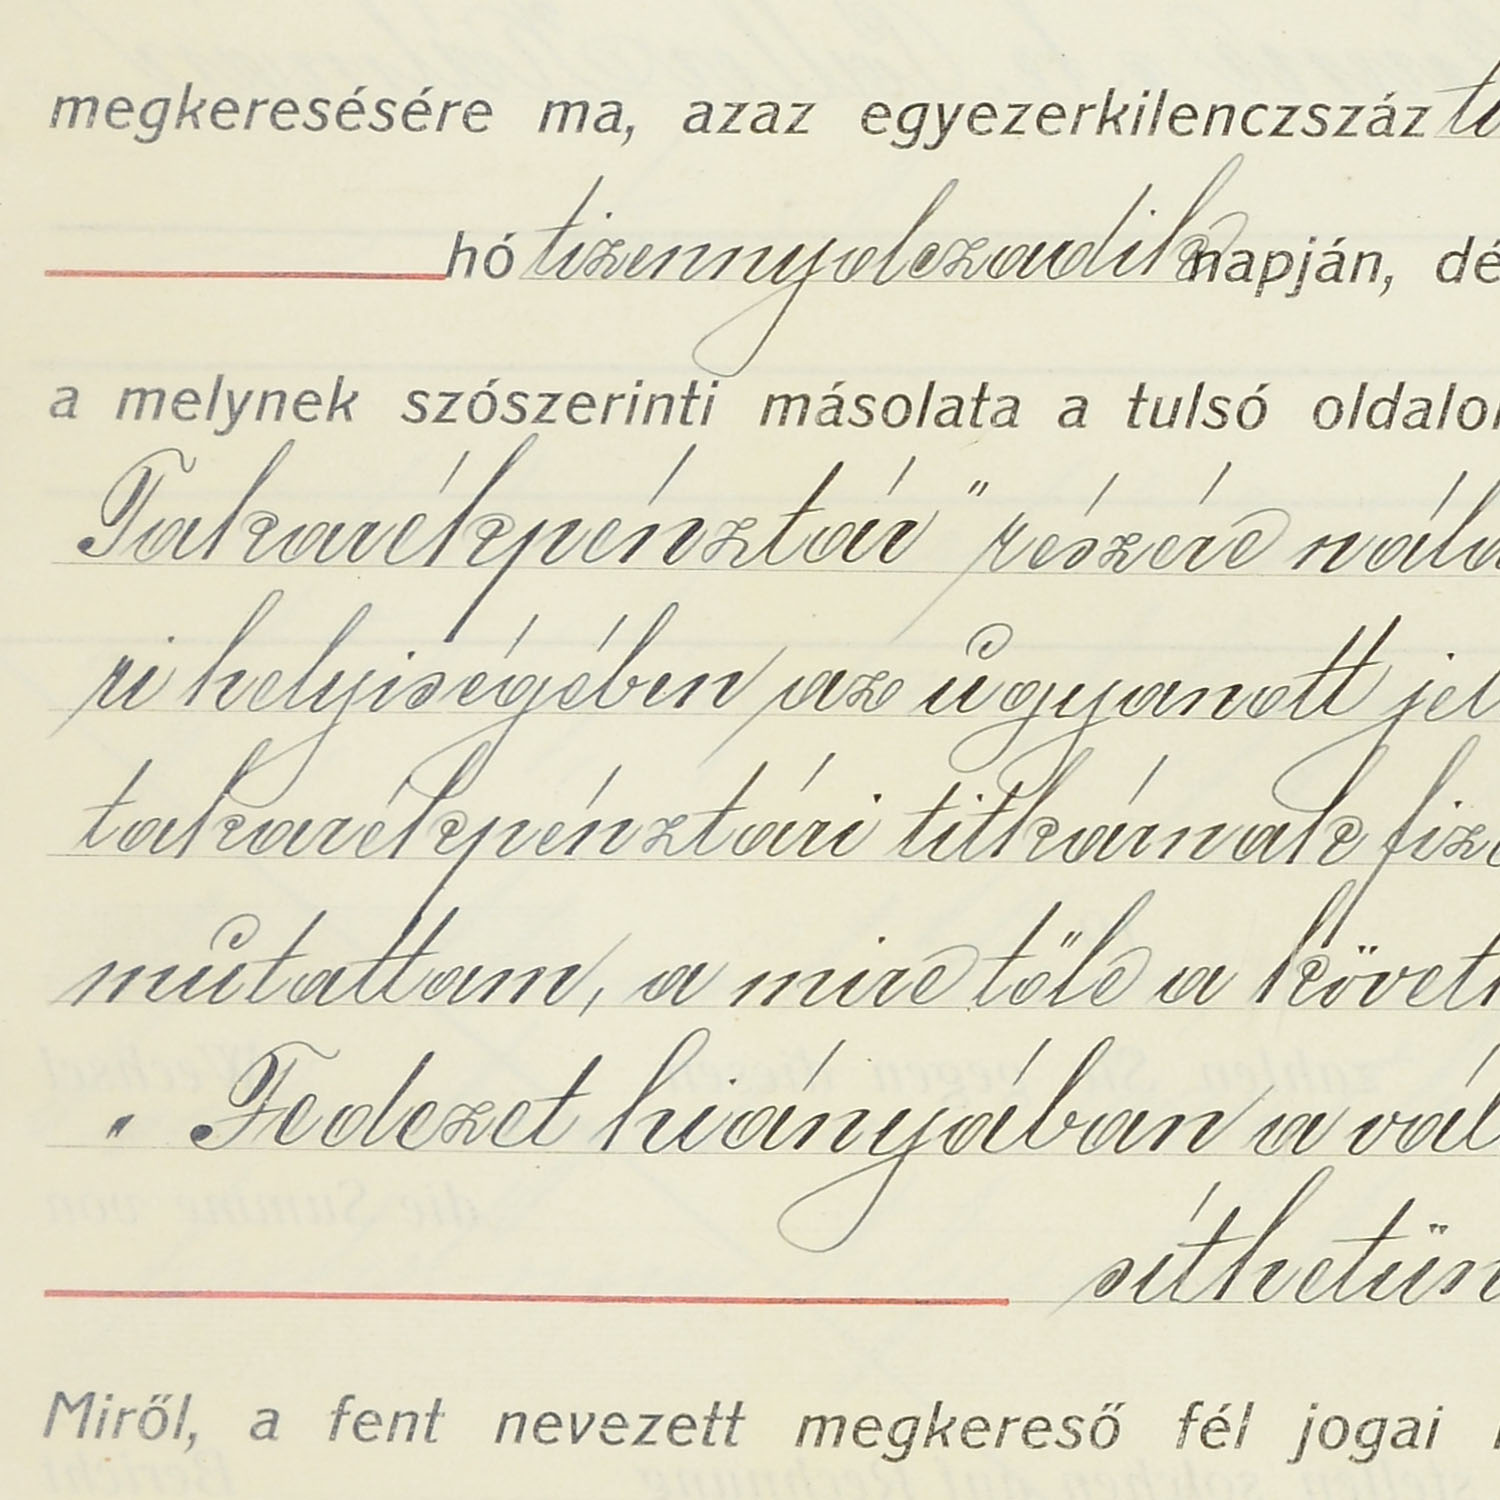 megkeresésére ma, azaz egyezerkilenczszáz
hó tizennyolczadik napján, dé
a melynek szószerinti másolata a tulsó oldalon
Takarékpénztár" részére nála
ri helyiségében az ugyanott jel
takarékpénztári titkárnak fize
mutattam, a mire tőle a követk
" Fedezet hiányában a vál
síthetün
Miről, a fent nevezett megkereső fél jogai